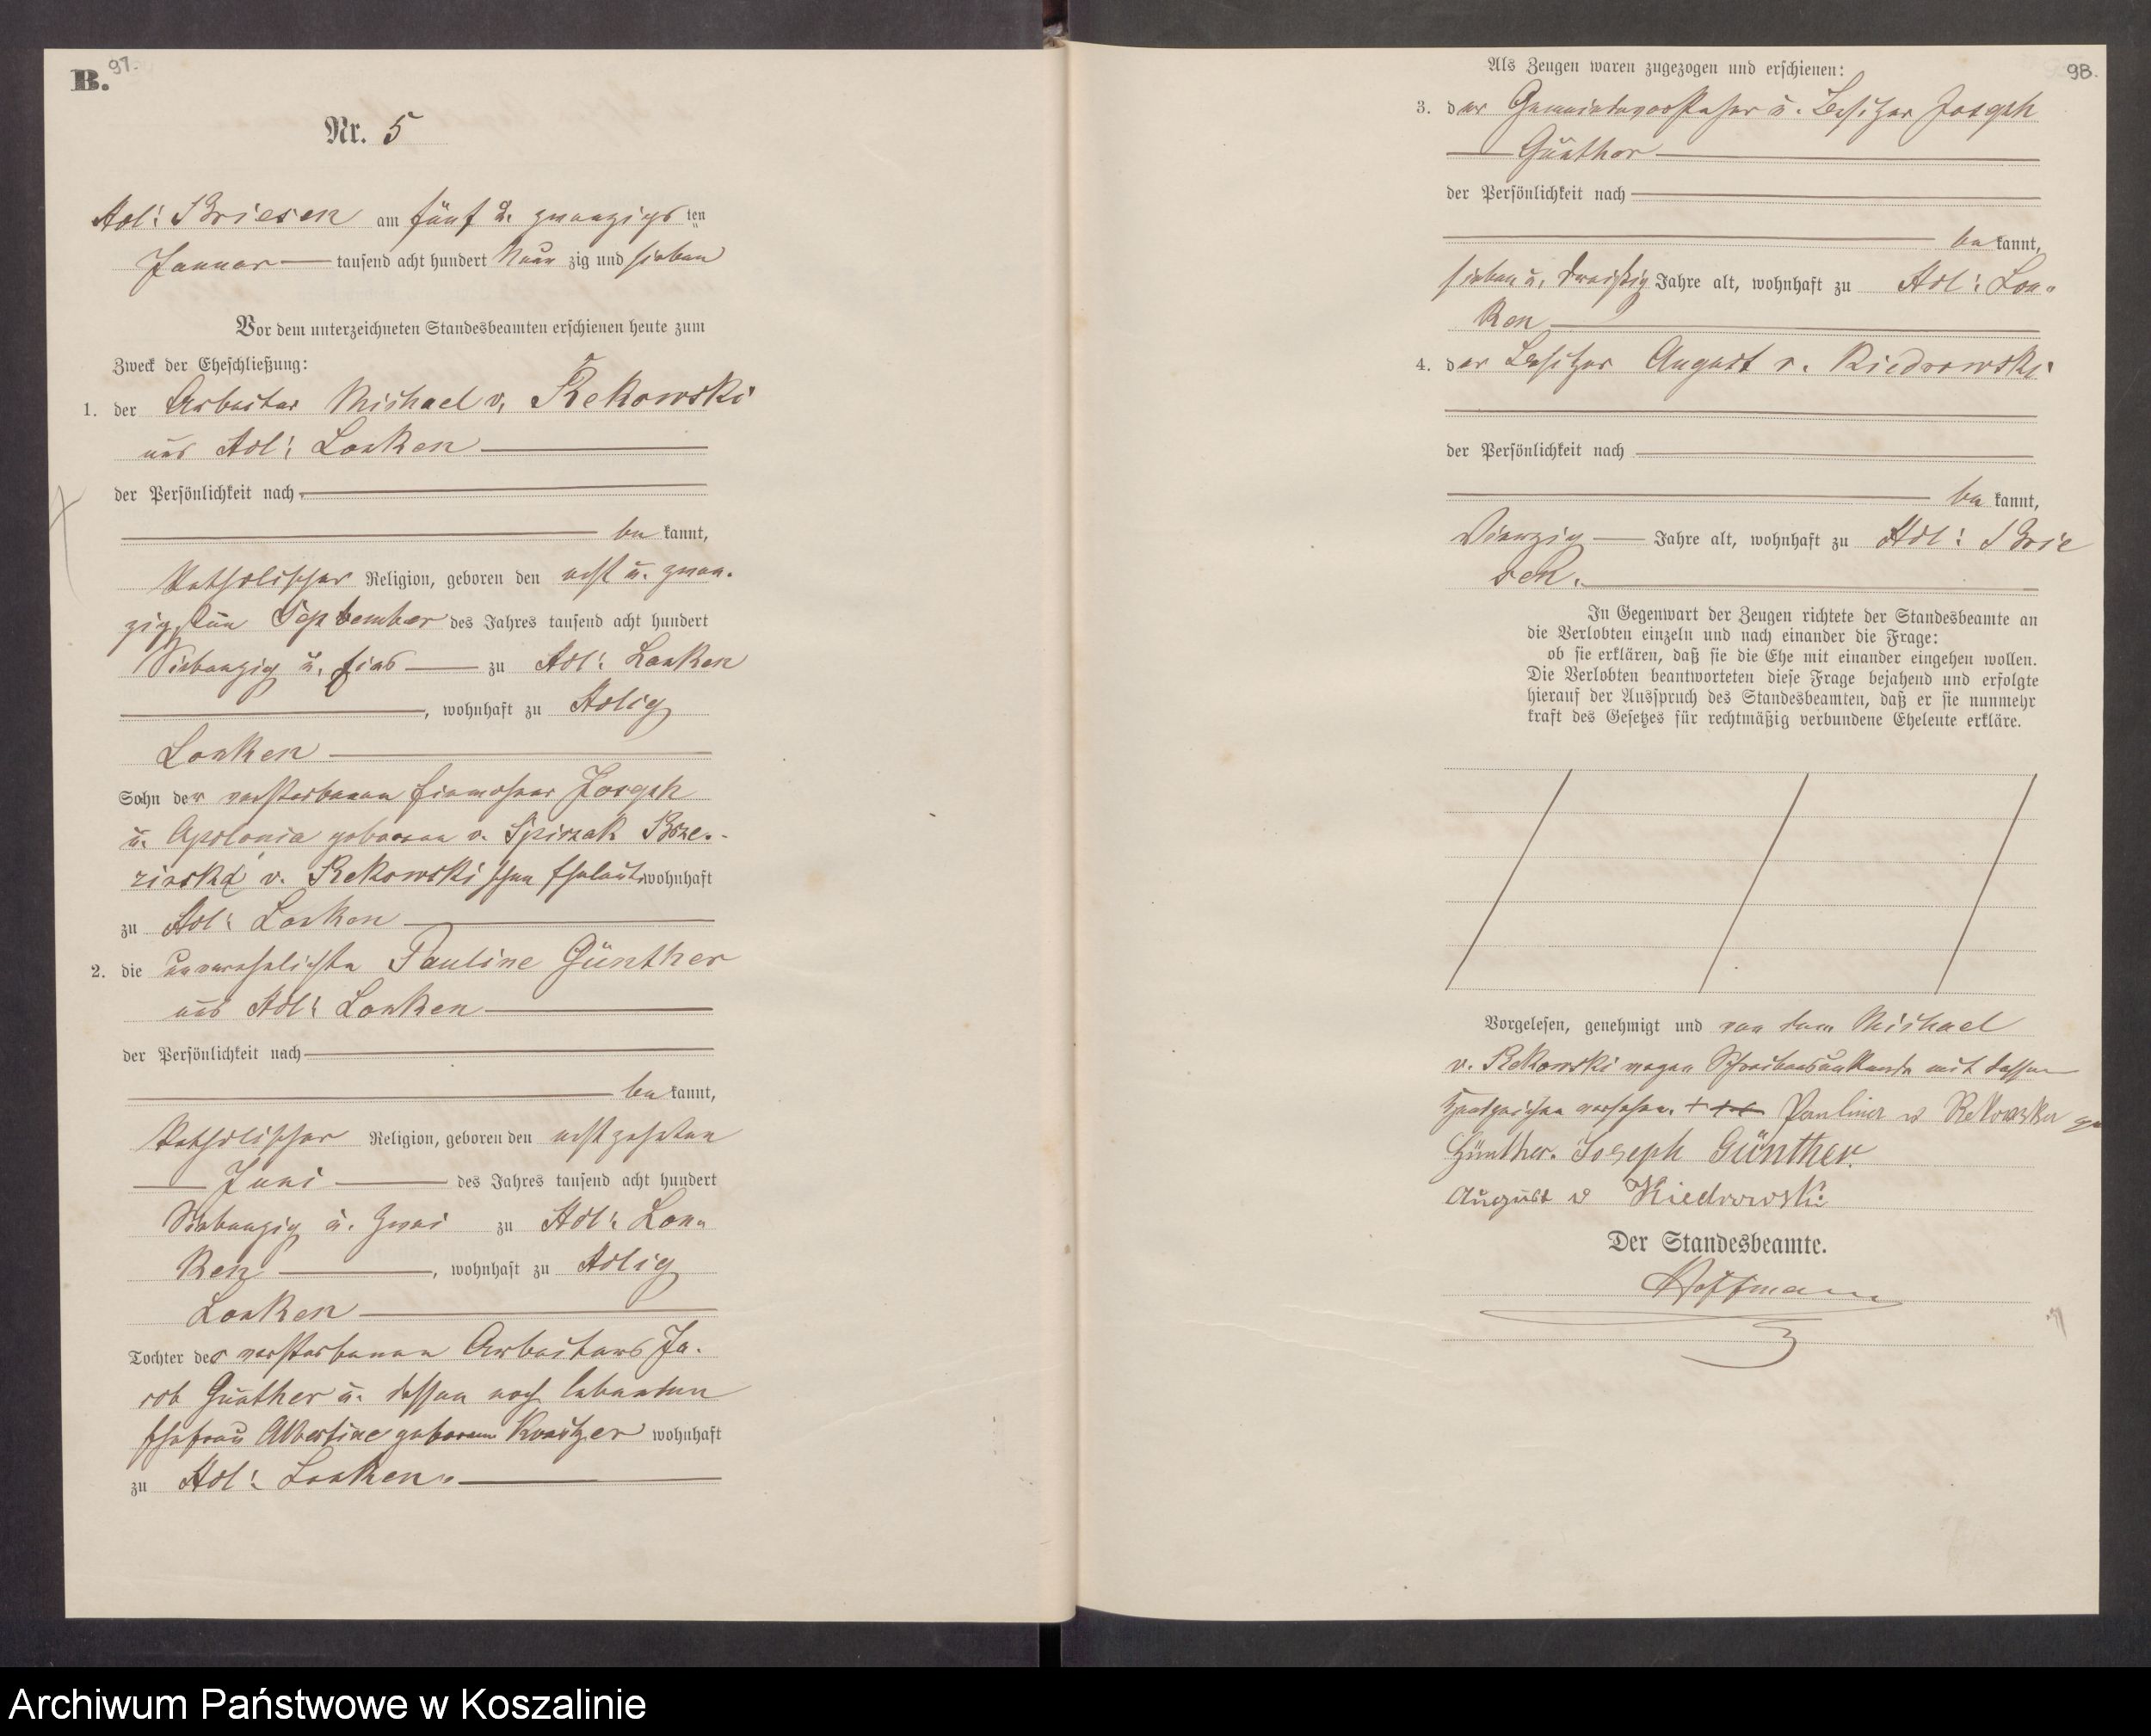 B. 97.
Nr. 5
Adl: Briesen am fünf u. zwanzigs ten
Januar tausend acht hundert Neun zig und sieben
Vor dem unterzeichneten Standesbeamten erschienen heute zum
Zweck der Eheschließung:
1. der Arbeiter Michael v. Rekowski
aus Adl: Lonken
der Persönlichkeit nach
be kannt,
katholischer Religion, geboren den acht u. zwan-
zigsten September des Jahres tausend acht hundert
Siebenzig u. eins zu Adl: Lonken
, wohnhaft zu Adlig
Lonken
Sohn der verstorbenen Einwohner Joseph
u. Apolonia geborene v. Spiczak Brze-
zinska v. Rekowski schen Eheleute wohnhaft
zu Adl: Lonken
2. die unverehelichte Pauline Günther
aus Adl: Lonken
der Persönlichkeit nach
be kannt,
katholischer Religion, geboren den achtzehnten
Juni des Jahres tausend acht hundert
Siebenzig u. Zwei zu Adl: Lon-
ken , wohnhaft zu Adlig
Lonken
Tochter des verstorbenen Arbeiters Ja-
cob Günther u. dessen noch lebenden
Ehefrau Albertine geborene wohnhaft
zu Adl: Lonken.
98.
Als Zeugen waren zugezogen und erschienen:
3. der Gemeindevorsteher u. Besitzer Joseph
Günther
der Persönlichkeit nach
be kannt,
sieben u. dreißig Jahre alt, wohnhaft zu Adl: Lon-
ken
4. der Besitzer August v. Kiedrowski
der Persönlichkeit nach
be kannt,
Vierzig Jahre alt, wohnhaft zu Adl: Brie
sen.
In Gegenwart der Zeugen richtete der Standesbeamte an
die Verlobten einzeln und nach einander die Frage:
ob sie erklären, daß sie die Ehe mit einander eingehen wollen.
Die Verlobten beantworteten diese Frage bejahend und erfolgte
hierauf der Ausspruch des Standesbeamten, daß er sie nunmehr
kraft des Gesetzes für rechtmäßig verbundene Eheleute erkläre.
Vorgelesen, genehmigt und von dem Michael
v. Rekowski wegen Schreibensunkunde mit dessen
Handzeichen versehen. +++ Pauline v Rekowska ge
Günther. Joseph Günther.
August v Kiedrowski
Der Standesbeamte.
Hoffmann
Archiwum Państwowe w Koszalinie